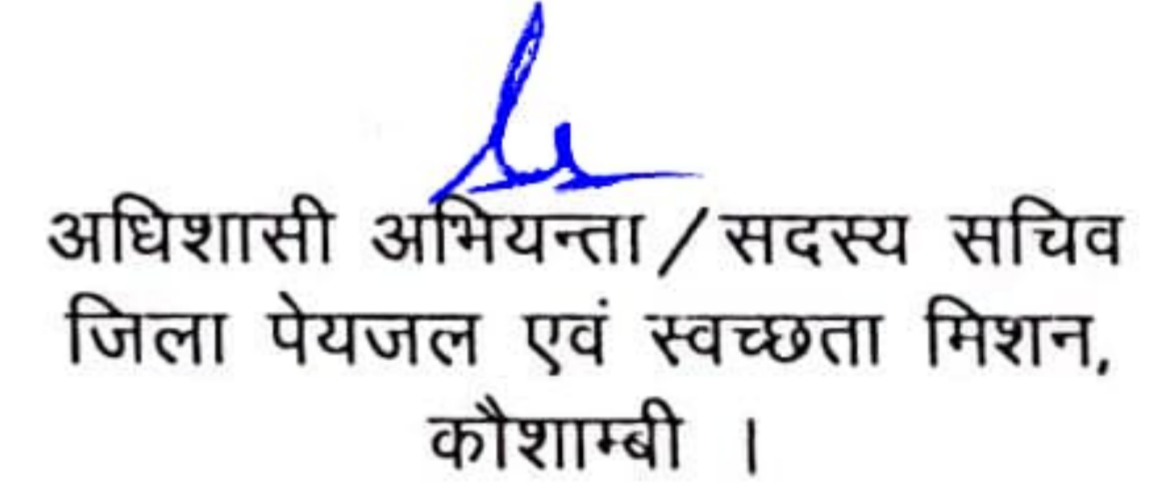 अधिशासी अभियन्ता/सदस्य सचिव
जिला पेयजल एवं स्वच्छता मिशन,
कौशाम्बी ।